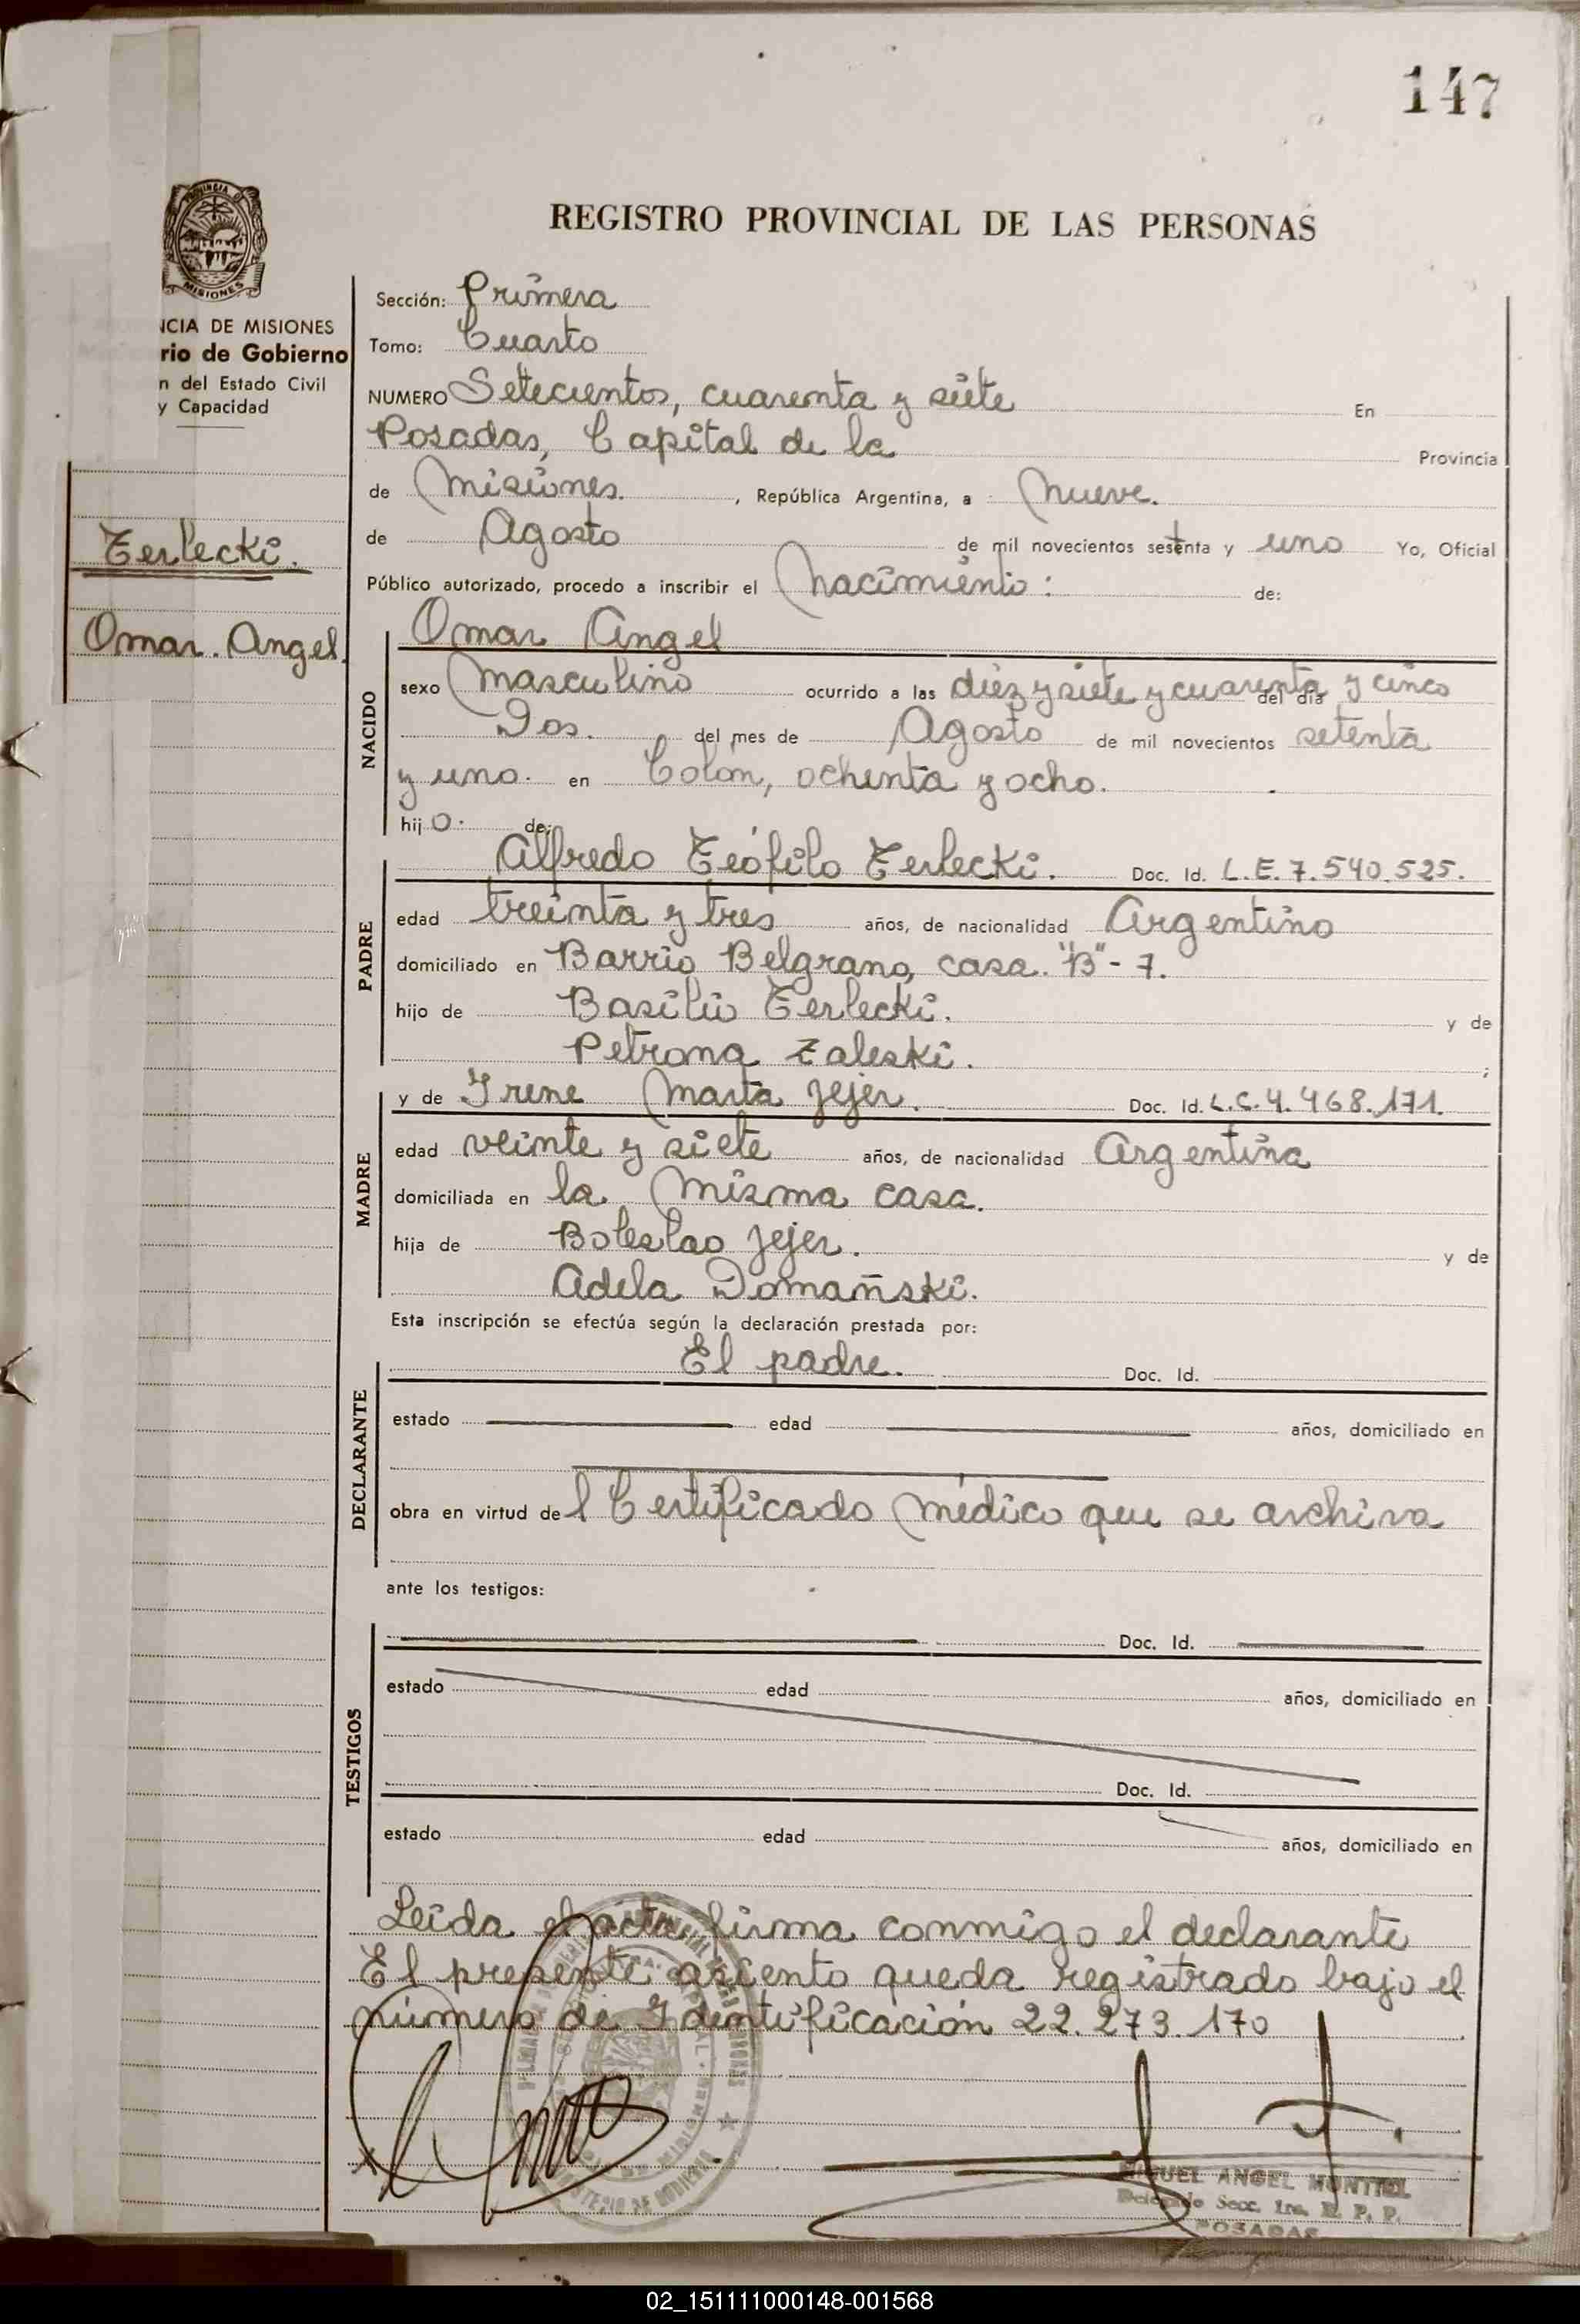 147
REGISTRO PROVINCIAL DE LAS PERSONAS
PROVINCIA
MISIONES
NCIA DE MISIONES
rio de Gobierno
n del Estado Civil
y Capacidad
Terlecki.
Omar. Angel.
Sección: Primera
Tomo: Cuarto
NUMERO Setecientos, cuarenta y siete En
Posadas, Capital de la Provincia
de Misiones. , República Argentina, a Nueve.
de Agosto de mil novecientos sesenta y uno Yo, Oficial
Público autorizado, procedo a inscribir el Nacimiento: de:
Omar Angel
NACIDO
sexo Masculino ocurrido a las diez y siete y cuarenta y cinco del día
Dos. del mes de Agosto de mil novecientos setenta
y uno. en Colon, ochenta y ocho.
hijo. de:
PADRE
Alfredo Teófilo Terlecki. Doc. Id. L.E. 7.540.525.
edad treinta y tres años, de nacionalidad Argentino
domiciliado en Barrio Belgrano, casa. "B"- 7.
hijo de Basilio Terlecki. y de
Petrona Zaleski. ;
MADRE
y de Irene Marta Jejer. Doc. Id. L.C. 4.468.171.
edad veinte y siete años, de nacionalidad Argentina
domiciliada en la Misma casa.
hija de Boleslao Jejer. y de
Adela Domañski.
Esta inscripción se efectúa según la declaración prestada por:
DECLARANTE
El padre. Doc. Id.
estado edad años, domiciliado en
obra en virtud del Certificado Médico que se archiva
ante los testigos:
TESTIGOS
Doc. Id.
estado edad años, domiciliado en
Doc. Id.
estado edad años, domiciliado en
Leida el acta, firma conmigo el declarante
El presente asiento queda registrado bajo el
número de Identificación 22.273.170
MIGUEL ANGEL MONTIEL
Delegado Secc. 1ra. R. P. P.
POSADAS
02_151111000148-001568